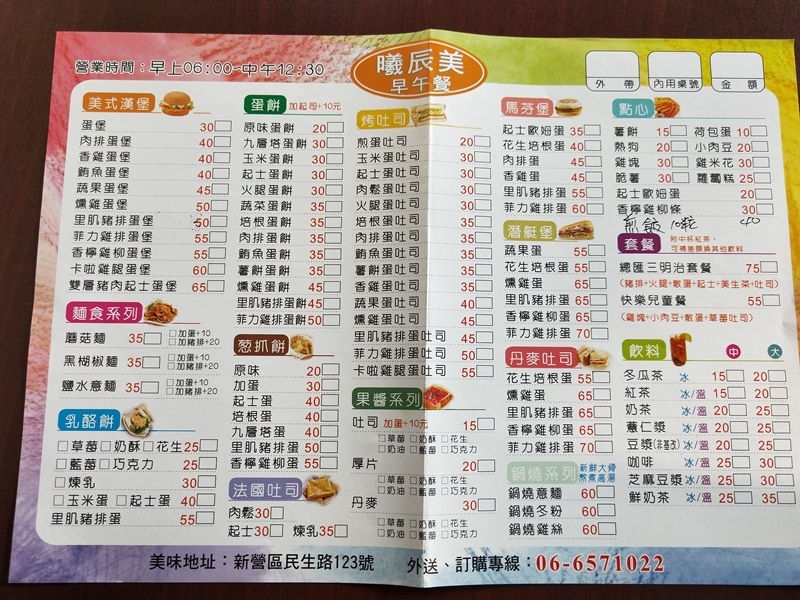 營業時間：早上06:00~中午12:30
曦辰美
早午餐
外帶
內用桌號
金額
美式漢堡
蛋堡 30
肉排蛋堡 40
香雞蛋堡 40
鮪魚蛋堡 40
蔬果蛋堡 45
燻雞蛋堡 50
里肌豬排蛋堡 50
菲力雞排蛋堡 55
香檸雞柳蛋堡 55
卡啦雞腿蛋堡 60
雙層豬肉起士蛋堡 65
麵食系列
蘑菇麵 35 □加蛋+10 □加豬排+20
黑椒麵 35 □加蛋+10 □加豬排+20
鹽水意麵 35 □加蛋+10 □加豬排+20
乳酪餅
□草莓□奶酥□花生25
□藍莓□巧克力 25
□煉乳 30
□玉米蛋 □起士蛋 40
里肌豬排蛋 55
蛋餅 加起司+10元
原味蛋餅 20
九層塔蛋餅 30
玉米蛋餅 30
起士蛋餅 30
火腿蛋餅 30
蔬菜蛋餅 35
培根蛋餅 35
肉排蛋餅 35
鮪魚蛋餅 35
薯餅蛋餅 35
燻雞蛋餅 45
里肌豬排蛋餅 45
菲力雞排蛋餅 50
蔥抓餅
原味 20
加蛋 30
起士蛋 40
培根蛋 40
九層塔蛋 40
里肌豬排蛋 50
香檸雞柳蛋 55
法國吐司
肉鬆30
起士30 煉乳35
烤吐司
煎蛋吐司 20
玉米蛋吐司 30
起士蛋吐司 30
肉鬆蛋吐司 30
火腿蛋吐司 30
培根蛋吐司 35
肉排蛋吐司 35
鮪魚蛋吐司 35
薯餅蛋吐司 35
香雞蛋吐司 35
蔬果蛋吐司 40
燻雞蛋吐司 45
里肌豬排蛋吐司 45
菲力雞排蛋吐司 50
卡啦雞腿蛋吐司 55
果醬系列
吐司 加蛋+10元 15
□草莓 □奶酥 □花生
□奶油 □藍莓 □巧克力
厚片 20
□草莓 □奶酥 □花生
□奶油 □藍莓 □巧克力
丹麥 30
□草莓 □奶酥 □花生
□奶油 □藍莓 □巧克力
馬芬堡
起士歐姆蛋 35
花生培根蛋 40
肉排蛋 45
香雞蛋 45
里肌豬排蛋 55
菲力雞排蛋 60
潛艇堡
蔬果蛋 55
花生培根蛋 55
燻雞蛋 65
里肌豬排蛋 65
香檸雞柳蛋 65
菲力雞排蛋 70
丹麥吐司
花生培根蛋 55
燻雞蛋 65
里肌豬排蛋 65
香檸雞柳蛋 65
菲力雞排蛋 70
鍋燒系列 新鮮大骨 熬煮高湯
鍋燒意麵 60
鍋燒冬粉 60
鍋燒雞絲 60
點心
薯餅 15 荷包蛋 10
熱狗 20 小肉豆 20
雞塊 30 雞米花 30
脆薯 30 蘿蔔糕 25
起士歐姆蛋 20
香檸雞柳條 30
煎餃 10粒 40
套餐 附中杯紅茶，可補差額換其他飲料
總匯三明治套餐 75
(豬排+火腿+散蛋+起士+美生菜+吐司)
快樂兒童餐 55
(雞塊+小肉豆+散蛋+草莓吐司)
飲料 中 大
冬瓜茶 冰 15 20
紅茶 冰/溫 15 20
奶茶 冰/溫 20 25
薏仁漿 冰/溫 20 25
豆漿(非基改) 冰/溫 20 25
咖啡 冰/溫 25 30
芝麻豆漿 冰/溫 25 30
鮮奶茶 冰/溫 25 35
美味地址：新營區民生路123號 外送、訂購專線：06-6571022